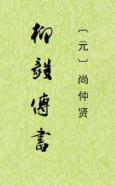 柳毅傳書
〔元〕尚仲贤